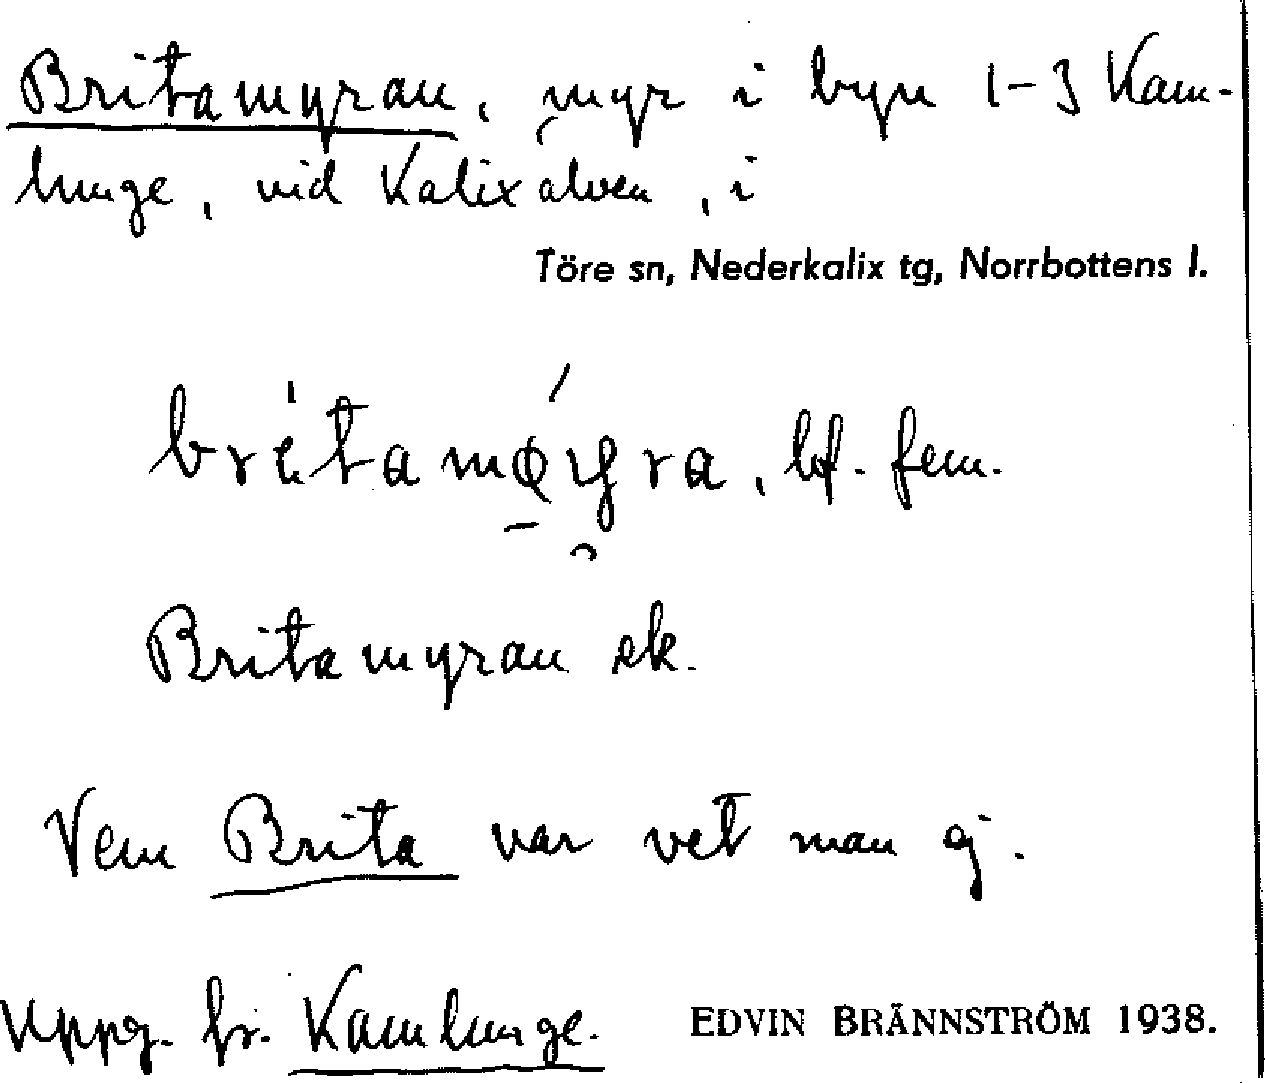 Britamyran, myr i byn 1-3 Kam-
lunge, vid Kalixälven, i
Töre sn, Nederkalix tg, Norrbottens l.
bf. fem.
Britamyran ek.
Vem Brita var vet man ej.
Uppg. fr. Kamlunge. EDVIN BRÄNNSTRÖM 1938.